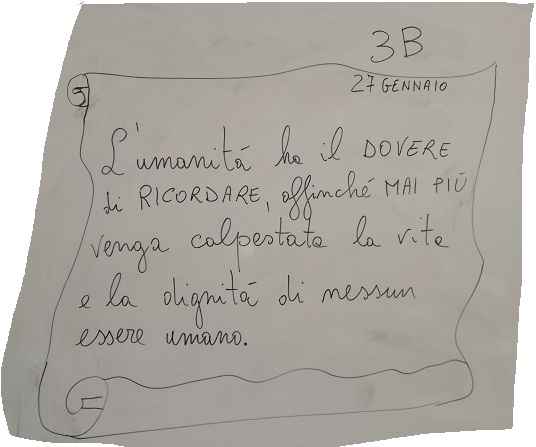 3B
27 GENNAIO
L'umanitá ha il DOVERE
di RICORDARE, affinché MAI PIÚ
venga calpestata la vita
e la dignitá di nessun
essere umano.